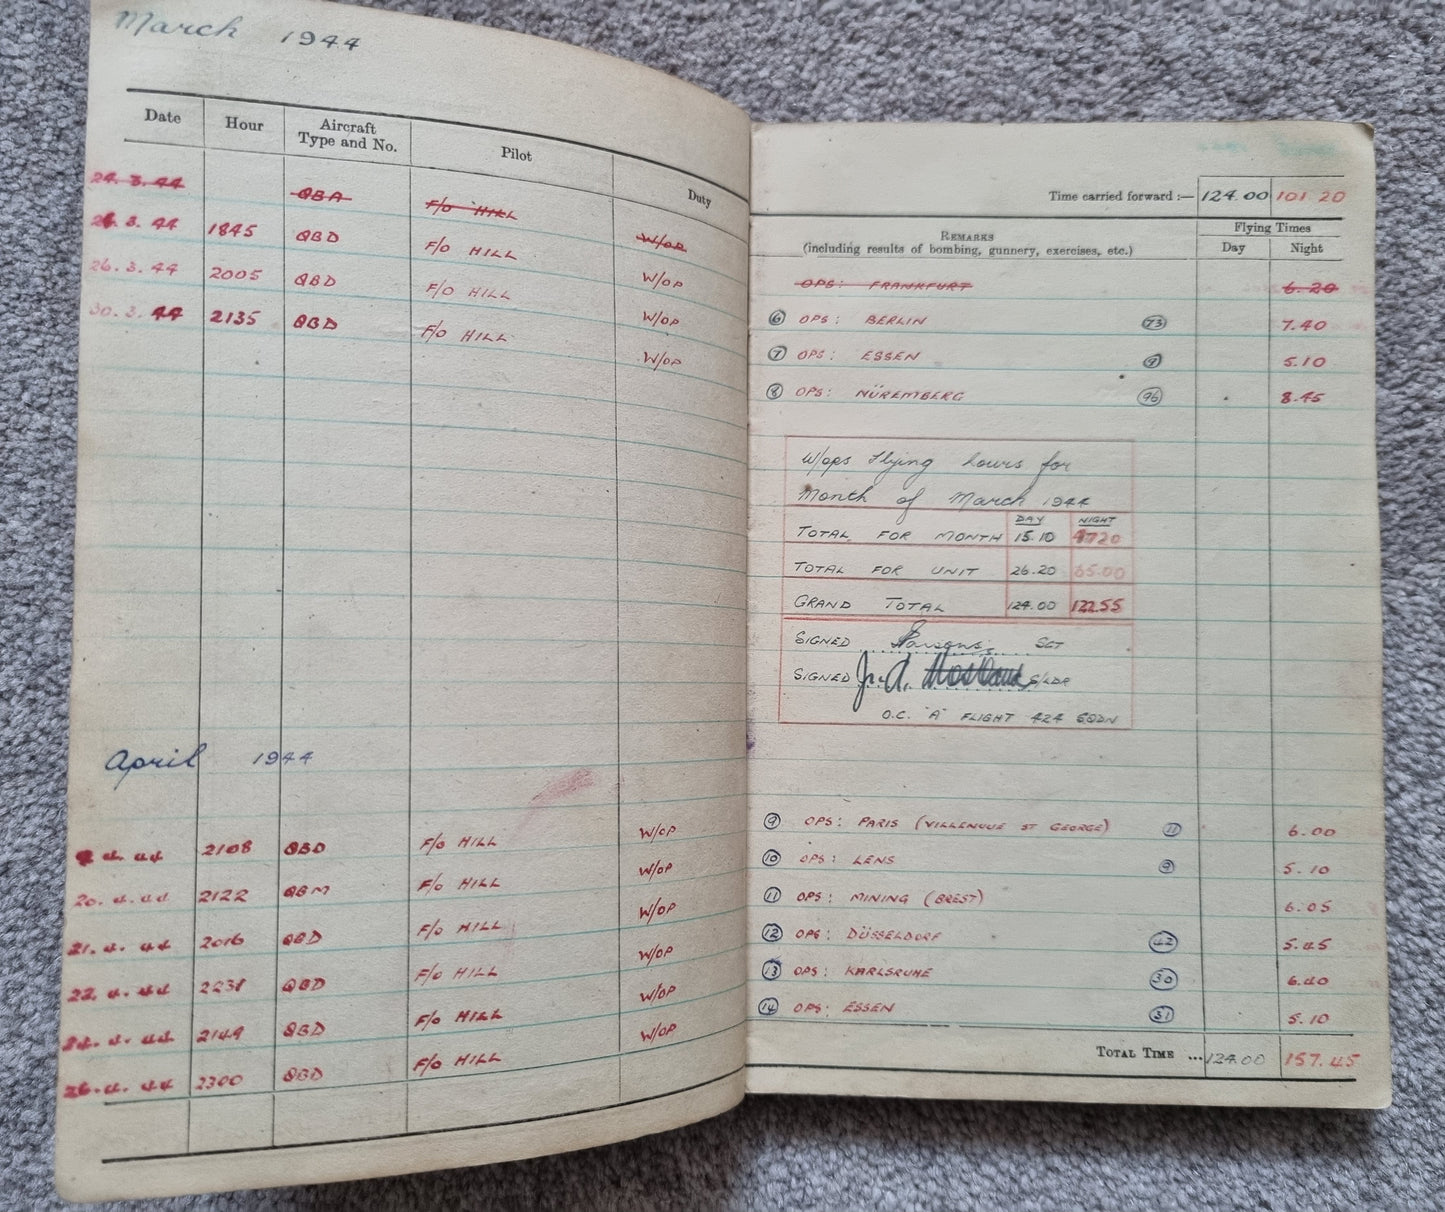 March 1944
Date Hour Aircraft Type and No. Pilot Duty
24.3.44 QBA F/O HILL W/OP
24.3.44 1845 QBD F/O HILL W/OP
26.3.44 2005 QBD F/O HILL W/OP
30.3.44 2135 QBD F/O HILL W/OP
April 1944
2108 QBD F/O HILL W/OP
20.4.44 2122 QBM F/O HILL W/OP
21.4.44 2016 QBD F/O HILL W/OP
22.4.44 2231 QBD F/O HILL W/OP
24.4.44 2149 QBD F/O HILL W/OP
26.4.44 2300 QBD F/O HILL W/OP
Time carried forward :— 124.00 101 20
REMARKS Flying Times
(including results of bombing, gunnery, exercises, etc.) Day Night
OPS: FRANKFURT 6.20
6 OPS: BERLIN 73 7.40
7 OPS: ESSEN 9 5.10
8 OPS: NÜREMBERG 96 8.45
W/ops flying hours for
Month of March 1944
DAY NIGHT
TOTAL FOR MONTH 15.10
TOTAL FOR UNIT 26.20 65.00
GRAND TOTAL 124.00 122.55
SIGNED Parsons SGT
SIGNED S/LDR
O.C. "A" FLIGHT 424 SQDN
9 OPS: PARIS (VILLENUUE ST GEORGE) 11 6.00
10 OPS: LENS 9 5.10
11 OPS: MINING (BREST) 6.05
12 OPS: DÜSSELDORF 42 5.45
13 OPS: KARLSRUHE 30 6.40
14 OPS: ESSEN 31 5.10
TOTAL TIME ... 124.00 157.45